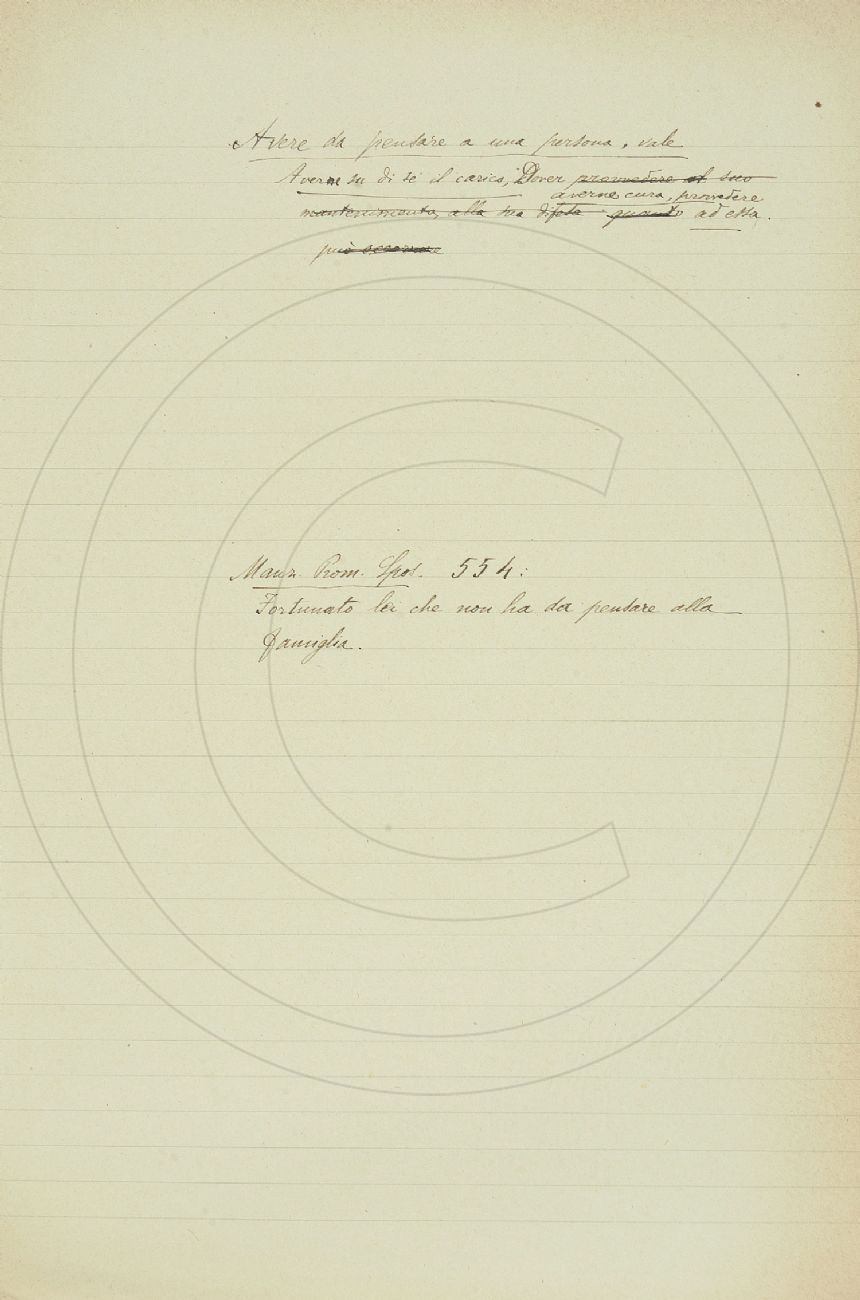 Avere da pensare a una persona, vale
Averne su di sé il carico, Dover provvedere al suo
averne cura, provvedere
mantenimento, alla sua difesa quanto ad essa.
può
Manz. Prom. Spos. 554:
Fortunato lei che non ha da pensare alla
famiglia.